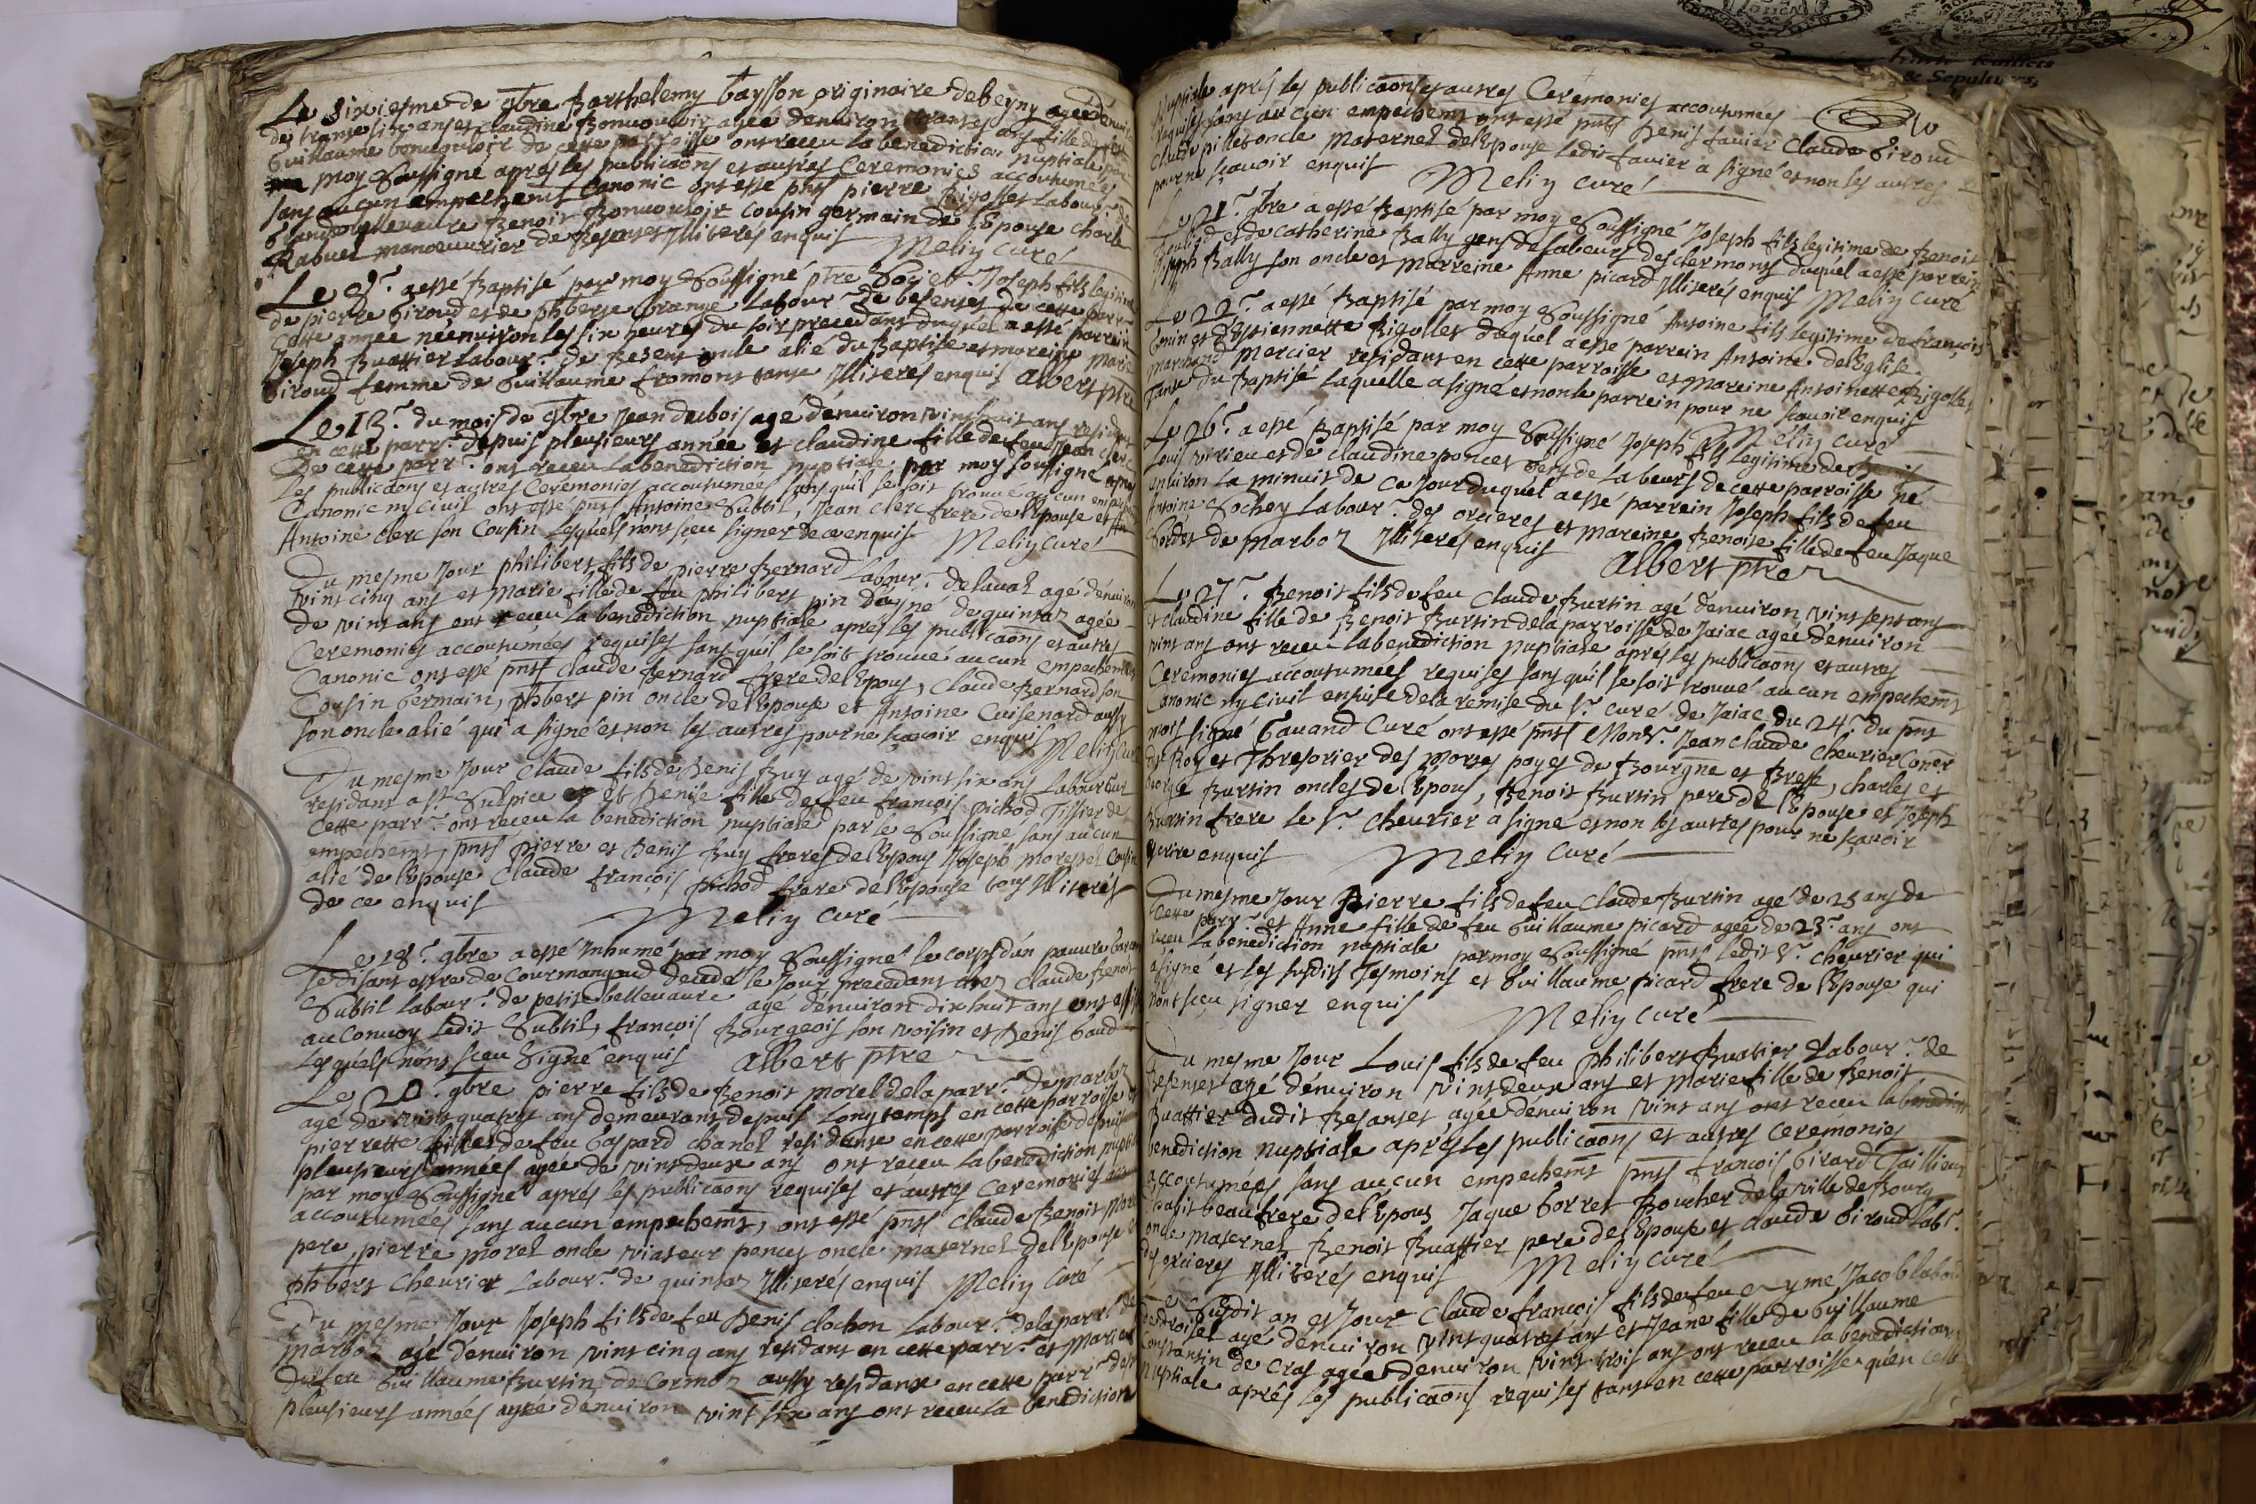 Le sixiesme de 9bre Barthelemy Taysson originaire de Beyny agé d'envir
de trante six ans et Claudine Bonvouloir agée d'environ trante ans fille de feu
Guillaume bonvouloir de cette parroisse ont receu la benediction nuptiale par
moy soussigné apres les publicaons et autres Ceremonies accoutumées
sans aucun empechemt Canonic ont esté pnts pierre Rigollet Labour. de
Grand bellevaure Benoit Bonvouloir Cousin germain de l'Epouse Charle
Rabuel manoeuvrier de Besenset Illiterés enquis Meliy Curé
Le 9.e a esté Baptisé par moy soussigné ptre Soci et Joseph fils legitime
de pierre Giroud et de phberte Grange Labour.r de besenset de cette parr.
cette année né environ les six heures du soir precedant duquel a esté parrein
Joseph Buattier Labour.r de Besenset oncle alié du Baptise et mareine Marie
Giroud femme de Guillaume fromont tante Illiteres enquis Albert ptre
Le 13.e du mois de 9bre Jean dubois agé d'environ vint huit ans resident
en cette parr.e depuis pleusieurs année et claudine fille de feu Jean clerc
de cette parr.e ont receu la benediction nuptiale par moy soussigné apres
les publicaons et autres Ceremonies accoutumées sans quil se soit trouvé aucun empechemt
Canonic ny Civil ont esté pnts Antoine Subtil, Jean clerc frere de l'Epouse et
Antoine clerc son Cousin lesquels nont sçeu signer de ce enquis Meliy Curé
Du mesme Jour philibert fils de pierre Bernard Labour.r de laval agé d'environ
vint cinq ans et Marie fille de feu philibert pin de quintaz agée
de vint ans ont receu la benediction nuptiale apres les publicaons et autres
Ceremonies accoutumées requises sans qu'il se soit trouvé aucun empechemt
Canonic ont esté pnts Claude Bernard frere de l'Epous, Claude Bernard son
Cousin Germain, phbert pin oncle de l'Epouse et Antoine Cuisenard aussy
son oncle alié qui a signé et non les autres pour ne sçavoir enquis Meliy Curé
Du mesme Jour Claude fils de Denis Buy agé de vint six ans Laboureur
residant a St. Sulpice et Denise fille de feu françois pichod Tissier de
cette parr.e ont receu la benediction nuptiale par le soussigné sans aucun
empechemt, pnts pierre et Denis Buy freres de l'Epous Joseph morestel Cousin
alié de l'Epouse Claude françois pichod frere de l'Epouse tous Illiterés
de ce enquis Meliy Curé
Le 18.e 9bre a esté Inhumé par moy soussigné le corps d'un pauvre Garçon
se disant estre de Courmangoud decedé le Jour precedant chez claude Benoit
Subtil Labour.r de petit bellevaure agé d'environ dix huit ans ont assisté
au Convoy ledit Subtil, françois Bourgeois son voisin et Denis Gaud
lesquels n'ont sceu signé enquis Albert ptre
Le 20.e 9bre pierre fils de Benoit Morel de la parr.e de Marboz
agé de vint quatre ans demeurant depuis Long temps en cette parroisse et
pierrette fille de feu Gaspard chanel residante en cette parroisse depuis
pleusieurs années agée de vint deux ans ont receu la benediction nuptiale
par moy soussigné aprés les publicaons requises et autres ceremonies
accoutumées sans aucun empechemt, ont esté pnts Claude Benoit Morel
pere, pierre morel oncle viateur poncet oncle maternel de l'Epouse et
phbert Chevrier Labour.r de quintaz Illiterés enquis Meliy Curé
Du mesme Jour Joseph fils de feu Denis Clochon Labour.r de la parr.e de
Marboz agé d'environ vint cinq ans residant en cette parr.e et Marie
de feu Guillaume Burtin de Cormoz aussy residante en cette parr.e depuis
pleusieurs années agée d'environ vint six ans ont receu la benediction
Nuptiale aprés les publicaons et autres Ceremonies accoutumées
requises sans aucun empechemt ont esté pnts Denis favier Claude Giroud
Claude pillet oncle Maternel de l'Epouse ledit favier a signé et non les autres
pour ne sçavoir enquis Meliy Curé
Le 21.e 9bre a esté Baptisé par moy soussigné Joseph fils legitime de Benoit
et de Catherine Bally gens de Labeurs des clermons duquel a esté parrein
Joseph Bally son oncle et Marreine Anne picard Illiterés enquis Meliy Curé
Le 22.e a esté Baptisé par moy soussigné Antoine fils legitime de françois
et d'Estiennette Rigollet duquel a esté parrein Antoine de l'Eglise
marchand Mercier residant en cette parroisse et Mareine Antoinette Rigollet
Tante du Baptisé laquelle a signé et non le parrein pour ne sçavoir enquis
Meliy Curé
Le 26.e a esté Baptisé par moy soussigné Joseph fils legitime de
Louis virieu et de claudine poncet Gens de Labeurs de cette parroisse né
environ la minuit de ce Jour duquel a esté parrein Joseph fils de feu
Antoine Sochey Labour.r des orcieres et Mareine Benoite fille de feu Jaque
Gordet de Marboz Illiterés enquis Albert ptre
Le 27.e Benoit fils de feu Claude Burtin agé d'environ vint sept ans
et claudine fille de Benoit Burtin de la parroisse de Jaiac agée d'environ
vint ans ont receu la benediction nuptiale aprés les publicaons et autres
Ceremonies accoutumées requises sans qu'il se soit trouvé aucun empechemt
Canonic ny Civil ensuite de la remise du Sr. Curé de Jaiac du 24.e du pnt
mois signé Gavand Curé ont esté pnts Monsr. Jean claude Chevrier Coner
du Roy et Thresorier des Mortes payes de Bourgne et Bresse, charles et
George Burtin oncles de l'Epous, Benoit Burtin pere de l'Epouse et Joseph
Burtin frere le Sr. Chevrier a signé et non les autres pour ne sçavoir
ecrire enquis Meliy Curé
Du mesme Jour Pierre fils de feu Claude Burtin agé de 25 ans de
cette parr.e et Anne fille de feu Guillaume picard agée de 23.e ans ont
receu la benediction nuptiale par moy soussigné pnts ledit Sr. Chevrier qui
a signé et les susdits Tesmoins et Guillaume picard frere de l'Epouse qui
n'ont sceu signer enquis Meliy Curé
Du mesme Jour Louis fils de feu philibert Buatier Labour.r de
Besenset agé d'environ vint deux ans et Marie fille de Benoit
Buattier dudit Besanset agée d'environ vint ans ont receu la benedict
benediction nuptiale aprés les publicaons et autres ceremonies
accoutumées sans aucun empechemt pnts françois Girard Taillieur
d'habit beau frere de l'Epous Jaque Gorret Boucher de la ville de Bourg
oncle maternel Benoit Buattier pere de l'Epouse et Claude Giroud Labr.
des orcieres Illiterés enquis Meliy Curé
Le Susdit an et Jour Claude françois fils de feu Aymé Jacob labour
agé d'environ vint quatre ans et Jeane fille de Guillaume
Constantin de Cras agée d'environ vint trois ans ont receu la benediction
nuptiale aprés les publicaons requises tant en cette parroisse qu'en celle